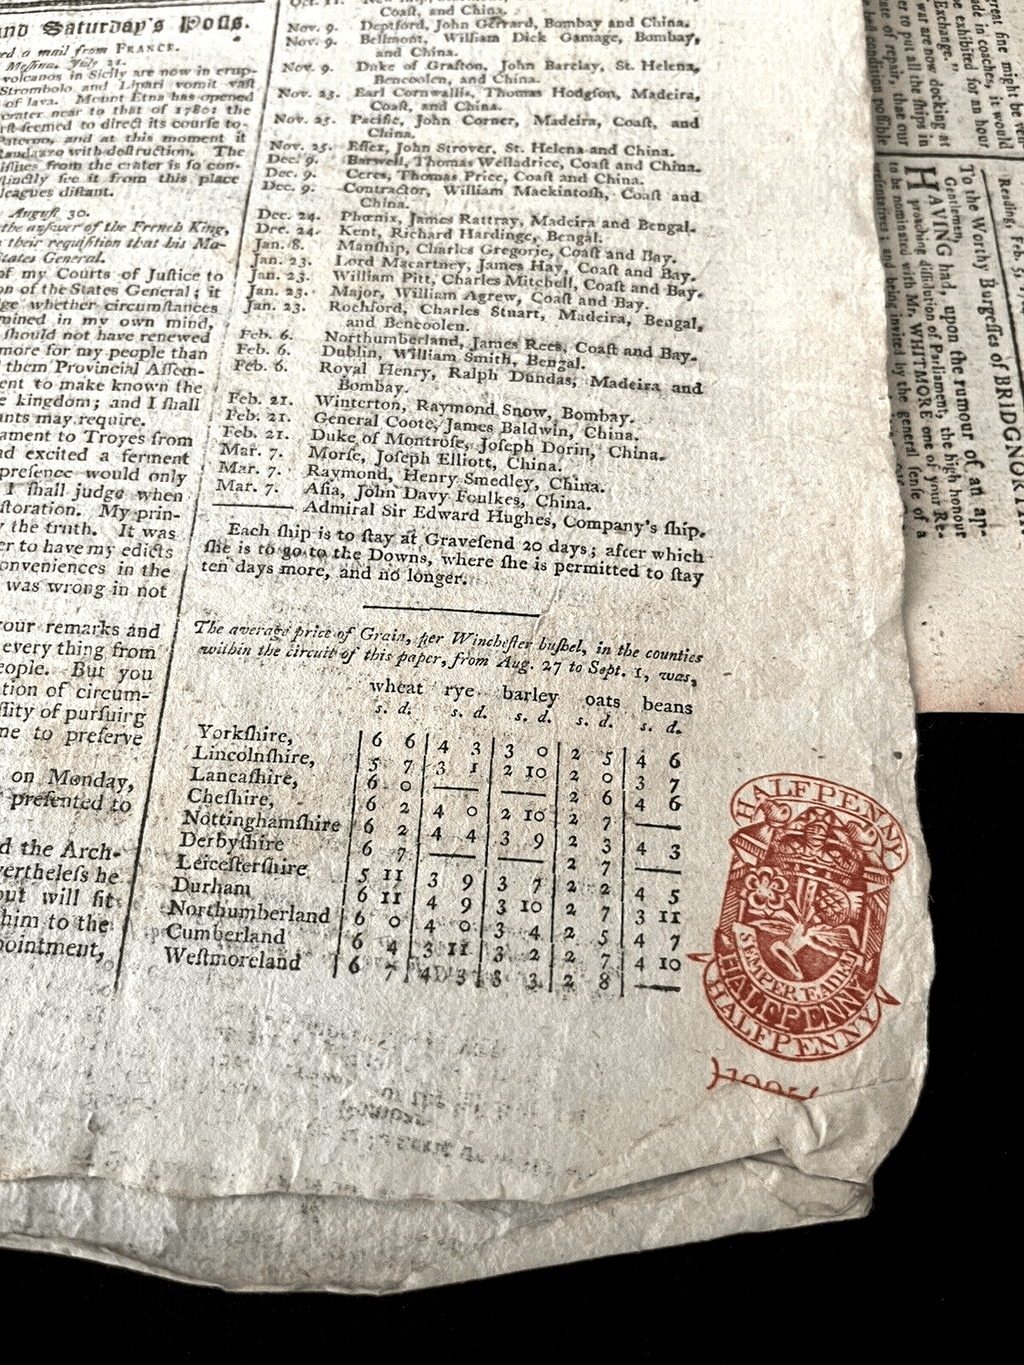 and Saturday's Posts.
ed a mail from FRANCE.
Messina, July 21.
volcanos in Sicily are now in erup-
Strombolo and Lipari vomit vast
of lava. Mount Etna has opened
crater near to that of 1780: the
rst seemed to direct its course to-
Paterno, and at this moment it
Randazzo with destruction. The
issues from the crater is so con-
stinctly see it from this place
leagues distant.
August 30.
the answer of the French King,
their requisition that his Ma-
States General.
of my Courts of Justice to
on of the States General; it
ge whether circumstances
mined in my own mind,
should not have renewed
more for my people than
them Provincial Assem-
ent to make known the
e kingdom; and I shall
ants may require.
ament to Troyes from
nd excited a ferment
presence would only
I shall judge when
storation. My prin-
y the truth. It was
er to have my edicts
onveniences in the
was wrong in not
our remarks and
every thing from
eople. But you
tion of circum-
ility of pursuirg
ne to preserve
on Monday,
presented to
d the Arch-
vertheless he
out will sit
him to the
pointment,
Coast, and China.
Nov. 9. Deptford, John Gerrard, Bombay and China.
Nov. 9. Bellmont, William Dick Gamage, Bombay,
and China.
Nov. 9. Duke of Grafton, John Barclay, St. Helena,
Bencoolen, and China.
Nov. 23. Earl Cornwallis, Thomas Hodgson, Madeira,
Coast, and China.
Nov. 25. Pacific, John Corner, Madeira, Coast, and
China.
Nov. 25. Essex, John Strover, St. Helena and China.
Dec. 9. Barwell, Thomas Welladrice, Coast and China.
Dec. 9. Ceres, Thomas Price, Coast and China.
Dec. 9. Contractor, William Mackintosh, Coast and
China.
Dec. 24. Phœnix, James Rattray, Madeira and Bengal.
Dec. 24. Kent, Richard Hardinge, Bengal.
Jan. 8. Manship, Charles Gregorie, Coast and Bay.
Jan. 23. Lord Macartney, James Hay, Coast and Bay.
Jan. 23. William Pitt, Charles Mitchell, Coast and Bay.
Jan. 23. Major, William Agrew, Coast and Bay.
Jan. 23. Rochford, Charles Stuart, Madeira, Bengal,
and Bencoolen.
Feb. 6. Northumberland, James Rees, Coast and Bay.
Feb. 6. Dublin, William Smith, Bengal.
Feb. 6. Royal Henry, Ralph Dundas, Madeira and
Bombay.
Feb. 21. Winterton, Raymond Snow, Bombay.
Feb. 21. General Coote, James Baldwin, China.
Feb. 21. Duke of Montrose, Joseph Dorin, China.
Mar. 7. Morse, Joseph Elliott, China.
Mar. 7. Raymond, Henry Smedley, China.
Mar. 7. Asia, John Davy Foulkes, China.
Admiral Sir Edward Hughes, Company's ship.
Each ship is to stay at Gravesend 20 days; after which
she is to go to the Downs, where she is permitted to stay
ten days more, and no longer.
The average price of Grain, per Winchester bushel, in the counties
within the circuit of this paper, from Aug. 27 to Sept. 1, was,
wheat rye barley oats beans
s. d. s. d. s. d. s. d. s. d.
Yorkshire, 6 6 4 3 3 0 2 5 4 6
Lincolnshire, 5 7 3 1 2 10 2 0 3 7
Lancashire, 6 0 — — 2 6 4 6
Cheshire, 6 2 4 0 2 10 2 7 —
Nottinghamshire 6 2 4 4 3 9 2 3 4 3
Derbyshire 6 7 — — 2 7 —
Leicestershire 5 11 3 9 3 7 2 2 4 5
Durham 6 11 4 9 3 10 2 7 3 11
Northumberland 6 0 4 0 3 4 2 5 4 7
Cumberland 6 4 3 11 3 2 2 7 4 10
Westmoreland 6 7 4 3 3 3 2 8 —
HALFPENNY
SEMPER EADEM
HALFPENNY
HALFPENNY
great fine might be
ade in coaches, it would
be exhibited for an hour
Exchange."
war are now docking at
er to put all the ships in
ate of repair, that our
best condition possible
Reading, Feb. 5,
To the Worthy Burgesses of BRIDGNORTH.
Gentlemen,
HAVING had, upon the rumour of an ap-
proaching dissolution of Parliament, the high honour
to be nominated with Mr. WHITMORE one of your Re-
presentatives; and being invited by the general sense of a